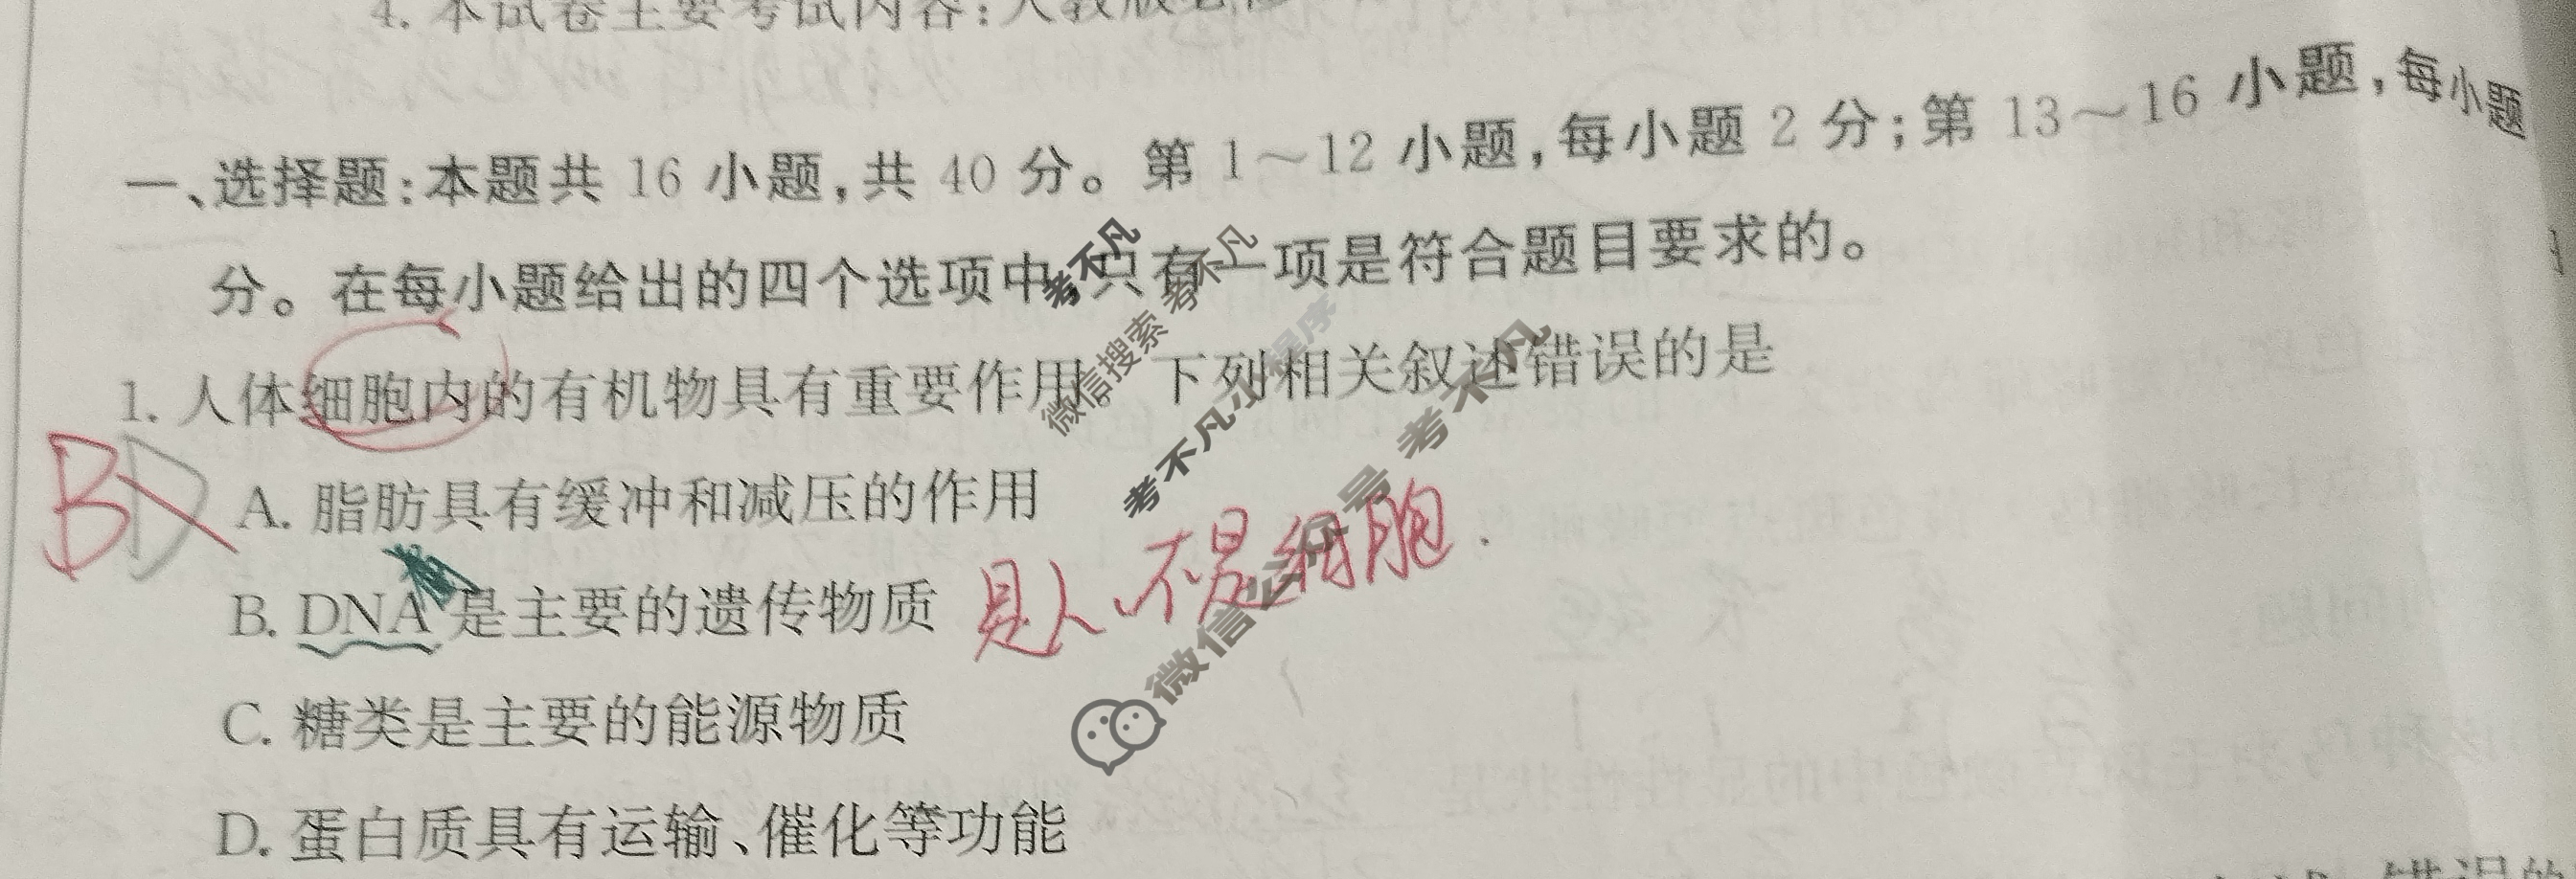 4. 本试卷主要考试内容：人教版必修
一、选择题：本题共 16 小题，共 40 分。第 1～12 小题，每小题 2 分；第 13～16 小题，每小题
分。在每小题给出的四个选项中，只有一项是符合题目要求的。
1. 人体细胞内的有机物具有重要作用。下列相关叙述错误的是
BD
A. 脂肪具有缓冲和减压的作用
B. DNA 是主要的遗传物质
是人、不是细胞.
C. 糖类是主要的能源物质
D. 蛋白质具有运输、催化等功能
考不凡
微信搜索 考不凡
考不凡小程序
微信公众号 考不凡
错误的